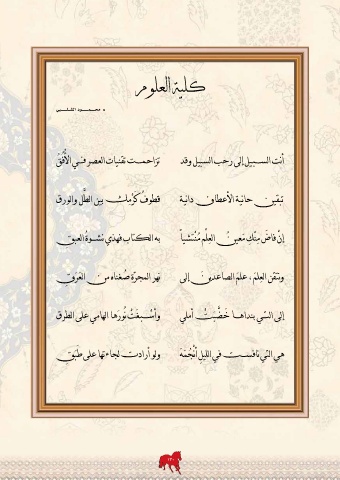 كلية العلوم
د. محمود الشلبي
أنت السبيل إلى رحب السبيل وقد تزاحمت تقنيات العصر في الأفق
تبقين حانية الأعطاف دانية قطوف كرمك بين الطل والورق
إن فاض منك معين العلم منتشيا به الكتاب فهذي نشوة العبق
ونتقن العلم، علم الصاعدين إلى نهر المجرة صغناه من العرق
إلى التي بنداها خضبت أملي وأسبغت نورها الهامي على الطرق
هي التي نافست في الليل أنجمه ولو أرادت لجاءتها على طبق